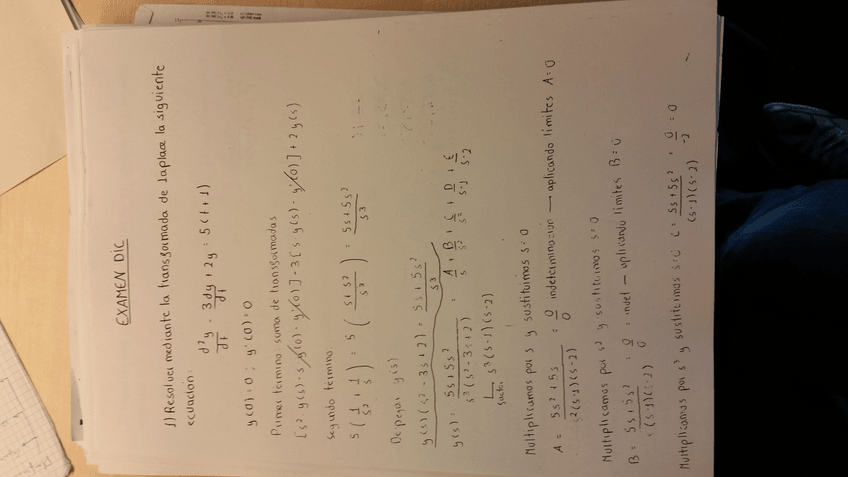 EXAMEN DIC
1) Resolver mediante la transformada de Laplace la siguiente
ecuacion:
d²y/dt - 3dy/dt + 2y = 5(t+1)
y(0)=0 ; y'(0)=0
Primer termino: suma de transformadas
[s² y(s) - s y(0) - y'(0)] - 3[s y(s) - y(0)] + 2y(s)
Segundo termino:
5(1/s² + 1/s) = 5(s+s²/s³) = 5s+5s²/s³
Despejar y(s)
y(s)(s²-3s+2) = 5s+5s²/s³
y(s) = 5s+5s²/s³(s²-3s+2) = A/s + B/s² + C/s² + D/s-1 + E/s-2
s³(s-1)(s-2)
Multiplicamos por s y sustituimos s=0
A = 5s²+5s/s²(s-1)(s-2) = 0/0 indeterminacion — aplicando limites A=0
Multiplicamos por s² y sustituimos s=0
B = 5s+5s²/s(s-1)(s-2) = 0/0 = indet — aplicando limites B=0
Multiplicamos por s³ y sustituimos s=0 C = 5s+5s²/(s-1)(s-2) = 0/-2 = 0